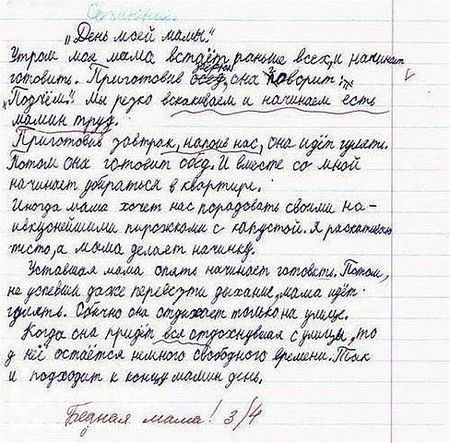 Сочинение.
„День моей мамы."
Утром моя мама встаёт раньше всех, и начинает
готовить. Приготовив обед, она говорит:
„Подъём!" Мы резко вскакиваем и начинаем есть
мамин труд.
Приготовив завтрак, напоив нас, она идёт гулять.
Потом она готовит обед. И вместе со мной
начинает убираться в квартире.
Иногда мама хочет нас порадовать своими на-
ивкуснейшими пирожками с капустой. Я раскатываю
тесто, а мама делает начинку.
Уставшая мама опять начинает готовить. Потом,
не успевши даже перевезти дыхание, мама идёт
гулять. Обычно она отдыхает только на улице.
Когда она придёт вся отдохнувшая с улицы, то
у неё остаётся немного свободного времени. Так
и подходит к концу мамин день.
Бедная мама! 3/4